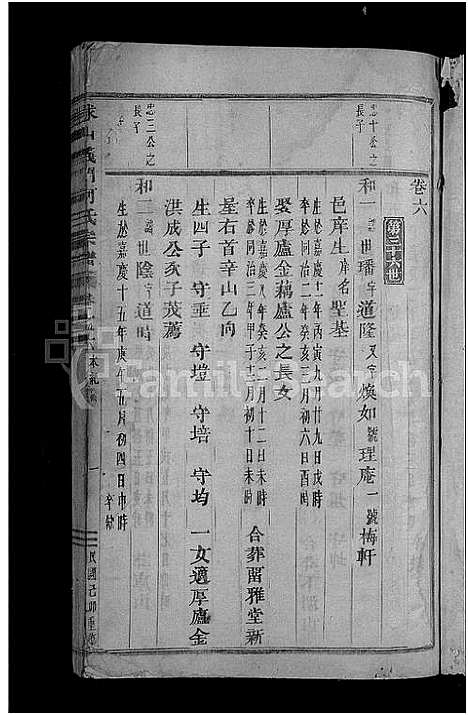 卷六
第三十八世
忠十公之長子
和一諱世璠字道隆又字煥如號理庵一號梅軒
邑庠生庠名聖基
生於嘉慶十一年丙寅九月廿九日戌時
卒於同治二年癸亥三月初六日酉時
娶厚廬金藕廬公之長女
生於嘉慶八年癸亥二月十二日未時
卒於同治三年甲子十二月初十日未時
合葬畱雅堂新
屋右首辛山乙向
生四子 守垂 守塏 守培 守均 一女適厚廬金
洪成公亥子茂蔫
忠三公之長子
和二諱世陰字道時
生於嘉慶十五年庚午五月初四日申時
卒缺
義門何氏宗譜
民國己卯重修
FamilySearch